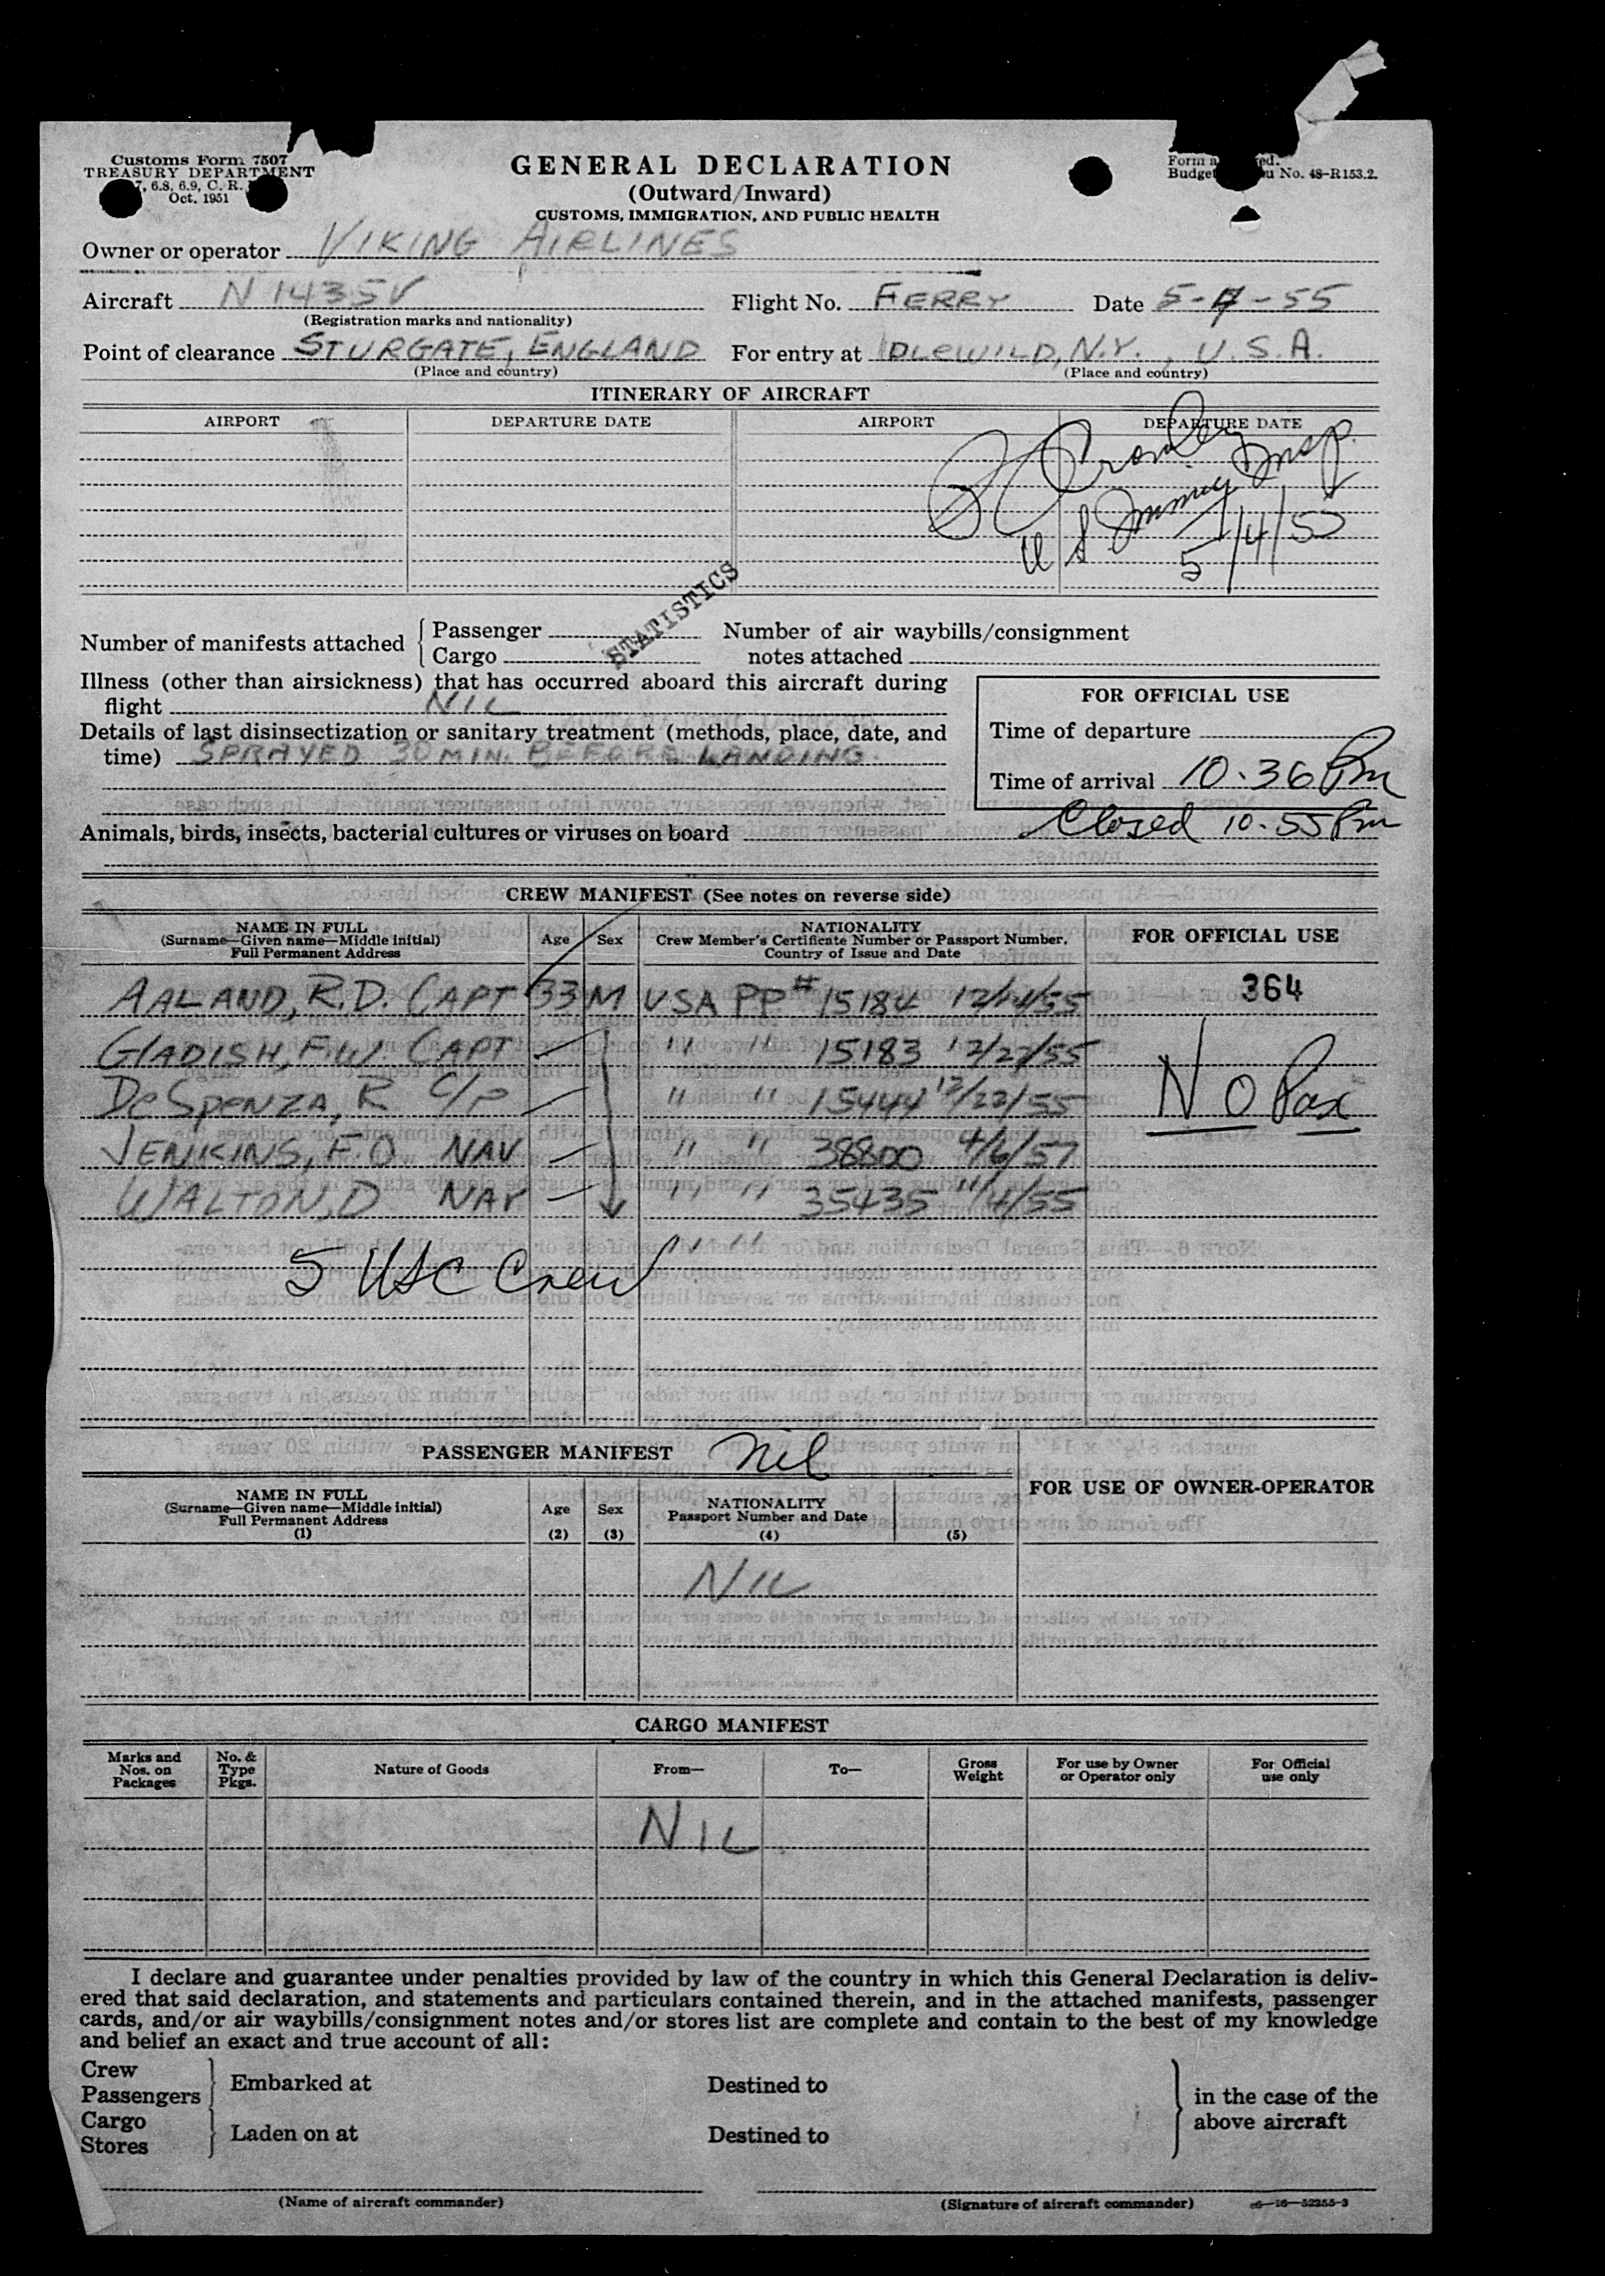 Customs Form 7507
TREASURY DEPARTMENT
7, 6.8, 6.9, C. R.
Oct. 1951
GENERAL DECLARATION
(Outward/Inward)
CUSTOMS, IMMIGRATION, AND PUBLIC HEALTH
Form a ed.
Budget u No. 48-R153.2.
Owner or operator VIKING AIRLINES
Aircraft N1435V Flight No. FERRY Date 5-4-55
(Registration marks and nationality)
Point of clearance STURGATE, ENGLAND For entry at IDLEWILD, N.Y., U.S.A.
(Place and country) (Place and country)
ITINERARY OF AIRCRAFT
AIRPORT DEPARTURE DATE AIRPORT DEPARTURE DATE
U S Immig Insp.
5/4/55
STATISTICS
Number of manifests attached { Passenger
Cargo
Number of air waybills/consignment
notes attached
Illness (other than airsickness) that has occurred aboard this aircraft during
flight NIL
Details of last disinsectization or sanitary treatment (methods, place, date, and
time) SPRAYED 30 MIN. BEFORE LANDING.
FOR OFFICIAL USE
Time of departure
Time of arrival 10.36 Pm
Closed 10.55 Pm
Animals, birds, insects, bacterial cultures or viruses on board
CREW MANIFEST (See notes on reverse side)
NAME IN FULL
(Surname—Given name—Middle initial)
Full Permanent Address
Age Sex
NATIONALITY
Crew Member's Certificate Number or Passport Number,
Country of Issue and Date
FOR OFFICIAL USE
AALAND, R.D. CAPT 33 M USA PP# 15184 12/14/55 364
GLADISH, F.W. CAPT — " " 15183 12/27/55
DeSPENZA, R C/P — " " 15444 12/22/55 No Pax
JENKINS, F.O NAV — " " 38800 4/6/57
WALTON, D NAV — " " 35435 11/4/55
5 USC Crew " " "
PASSENGER MANIFEST Nil
NAME IN FULL
(Surname—Given name—Middle initial)
Full Permanent Address
(1)
Age
(2)
Sex
(3)
NATIONALITY
Passport Number and Date
(4) (5)
FOR USE OF OWNER-OPERATOR
NIL
CARGO MANIFEST
Marks and
Nos. on
Packages
No. &
Type
Pkgs.
Nature of Goods
From—
To—
Gross
Weight
For use by Owner
or Operator only
For Official
use only
NIL
I declare and guarantee under penalties provided by law of the country in which this General Declaration is deliv-
ered that said declaration, and statements and particulars contained therein, and in the attached manifests, passenger
cards, and/or air waybills/consignment notes and/or stores list are complete and contain to the best of my knowledge
and belief an exact and true account of all:
Crew
Passengers } Embarked at Destined to
Cargo
Stores } Laden on at Destined to
} in the case of the
above aircraft
(Name of aircraft commander) (Signature of aircraft commander)